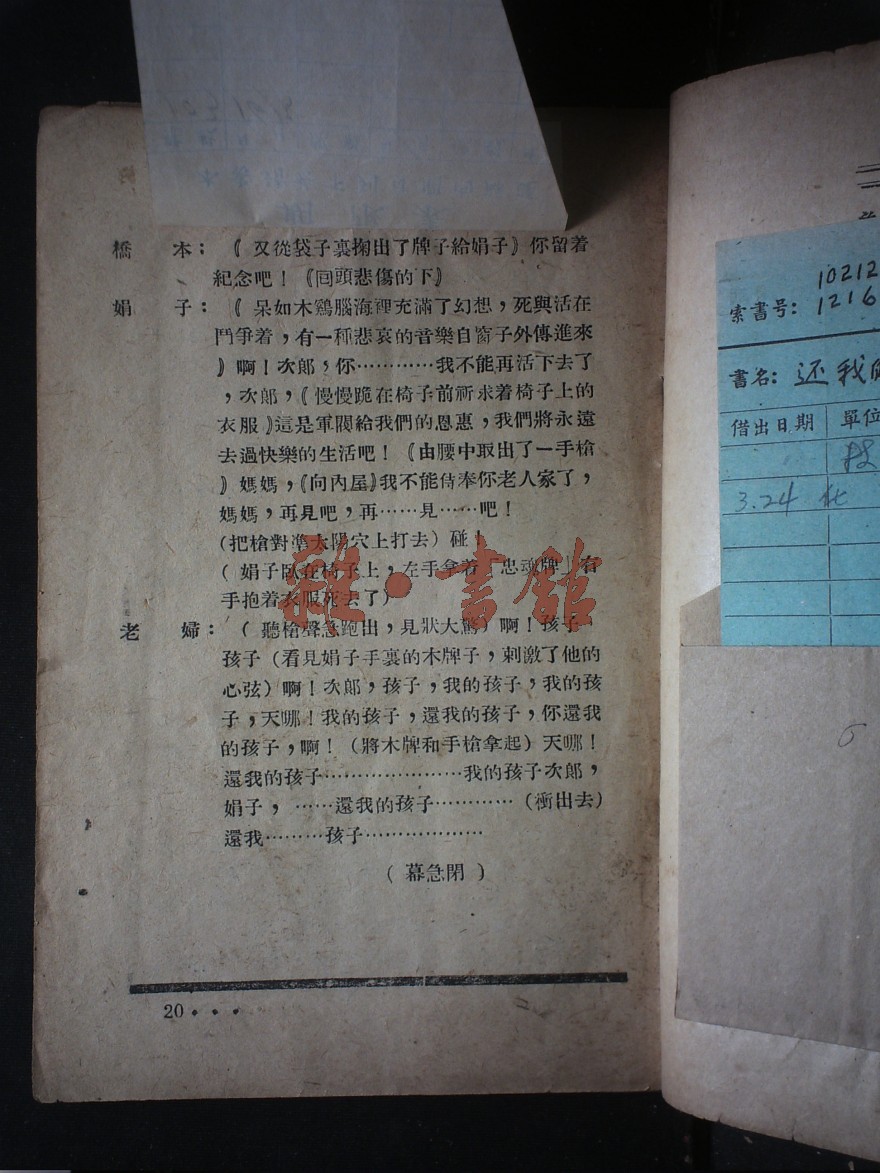 橋　本：《又從袋子裏掏出了牌子給娟子》你留着
紀念吧！《回頭悲傷的下》
娟　子：《呆如木鷄腦海裡充滿了幻想，死與活在
鬥爭着，有一種悲哀的音樂自窗子外傳進來
》啊！次郞，你…………我不能再活下去了
，次郞，《慢慢跪在椅子前祈求着椅子上的
衣服》這是軍閥給我們的恩惠，我們將永遠
去過快樂的生活吧！《由腰中取出了一手槍
》媽媽，《向內屋》我不能侍奉你老人家了，
媽媽，再見吧，再……見……吧！
(把槍對準太陽穴上打去）碰！
（娟子臥在椅子上，左手拿着「忠魂牌」右
手抱着衣服死去了）
老　婦：（聽槍聲急跑出，見狀大驚）啊！孩子
孩子（看見娟子手裏的木牌子，刺激了他的
心弦）啊！次郞，孩子，我的孩子，我的孩
子，天哪！我的孩子，還我的孩子，你還我
的孩子，啊！（將木牌和手槍拿起）天哪！
還我的孩子…………………我的孩子次郞，
娟子，……還我的孩子…………（衝出去）
還我………孩子………………
（幕急閉）
20・・・
雜・書館
索書号：
10212
1216
書名：还我
借出日期 單位
3.24